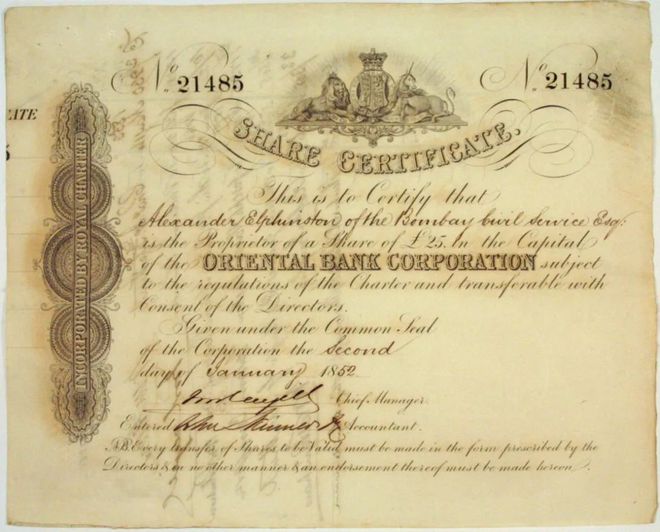 ATE
5
No 21485
No 21485
SHARE CERTIFICATE.
INCORPORATED BY ROYAL CHARTER
This is to Certify that
Alexander Elphinston of the Bombay Civil Service Esqr.
is the Proprietor of a Share of £25. In the Capital
of the ORIENTAL BANK CORPORATION subject
to the regulations of the Charter and transferable with
Consent of the Directors.
Given under the Common Seal
of the Corporation the Second
day of January 1852
Chief Manager.
Entered John Skinner Accountant.
N.B. Every transfer of Shares to be Valid must be made in the form prescribed by the
Directors & in no other manner & an endorsement thereof must be made hereon.